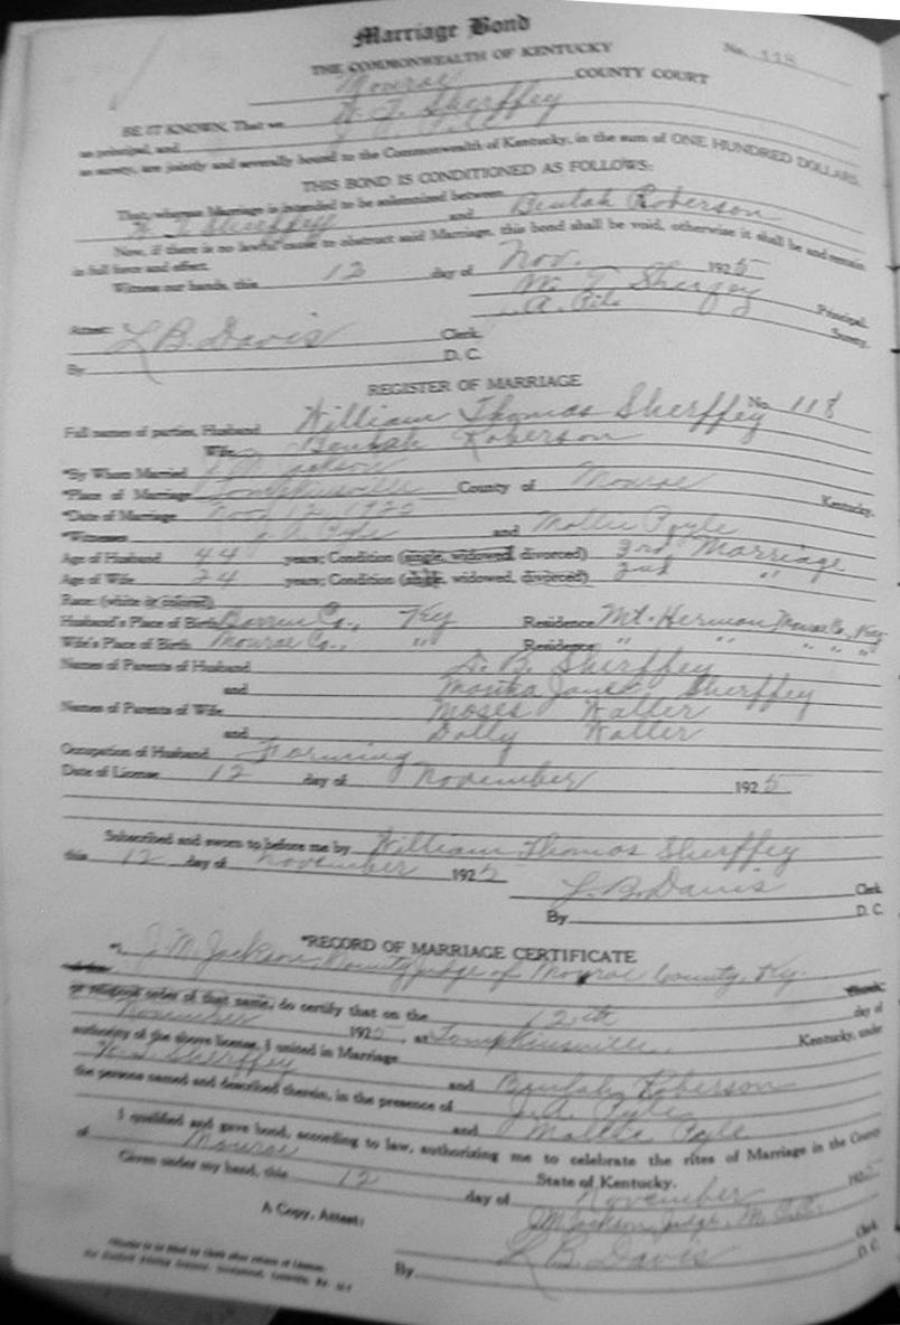 Marriage Bond
No. 118
THE COMMONWEALTH OF KENTUCKY
Monroe COUNTY COURT
BE IT KNOWN, That we W. T. Sherffey
as principal, and
as surety, are jointly and severally bound to the Commonwealth of Kentucky, in the sum of ONE HUNDRED DOLLARS.
THIS BOND IS CONDITIONED AS FOLLOWS:
That, whereas Marriage is intended to be solemnized between
W. T. Sherffey and Beulah Roberson
Now, if there is no lawful cause to obstruct said Marriage, this bond shall be void, otherwise it shall be and remain
in full force and effect.
Witness our hands, this 12 day of Nov. 1925
W. T. Sherffey Principal.
J. A. Pile Surety.
Attest: L B. Davis Clerk
By D. C.
REGISTER OF MARRIAGE
No. 118
Full names of parties, Husband William Thomas Sherffey
Wife Beulah Roberson
*By Whom Married Jackson
*Place of Marriage Tompkinsville County of Monroe Kentucky.
*Date of Marriage Nov 12, 1925
*Witnesses J. A. Pyle and Mollie Pyle
Age of Husband 44 years; Condition (single, widowed, divorced) 3rd Marriage
Age of Wife 24 years; Condition (single, widowed, divorced) 2nd "
Race: (white or colored)
Husband's Place of Birth Barren Co., Ky Residence Mt. Herman Monroe Co., Ky
Wife's Place of Birth Monroe Co., " Residence " " " " "
Names of Parents of Husband B. Sherffey
and Sherffey
Names of Parents of Wife Moses Walter
and Dolly Walter
Occupation of Husband Farming
Date of License 12 day of November 1925
Subscribed and sworn to before me by William Thomas Sherffey
this 12 day of November 1925
L. B. Davis Clerk
By D. C.
*RECORD OF MARRIAGE CERTIFICATE
*I, J. M. Jackson County Judge of Monroe County, Ky.
or religious order of that name, do certify that on the 12th day of
November 1925, at Tompkinsville, Kentucky, under
authority of the above license, I united in Marriage
W. T. Sherffey and Beulah Roberson
the persons named and described therein, in the presence of J. A. Pyle
and Mollie Pyle
I qualified and gave bond, according to law, authorizing me to celebrate the rites of Marriage in the County
of Monroe State of Kentucky.
Given under my hand, this 12 day of November 1925
J M Jackson, Judge, M. C. C.
A Copy, Attest: L B. Davis Clerk
By D. C.